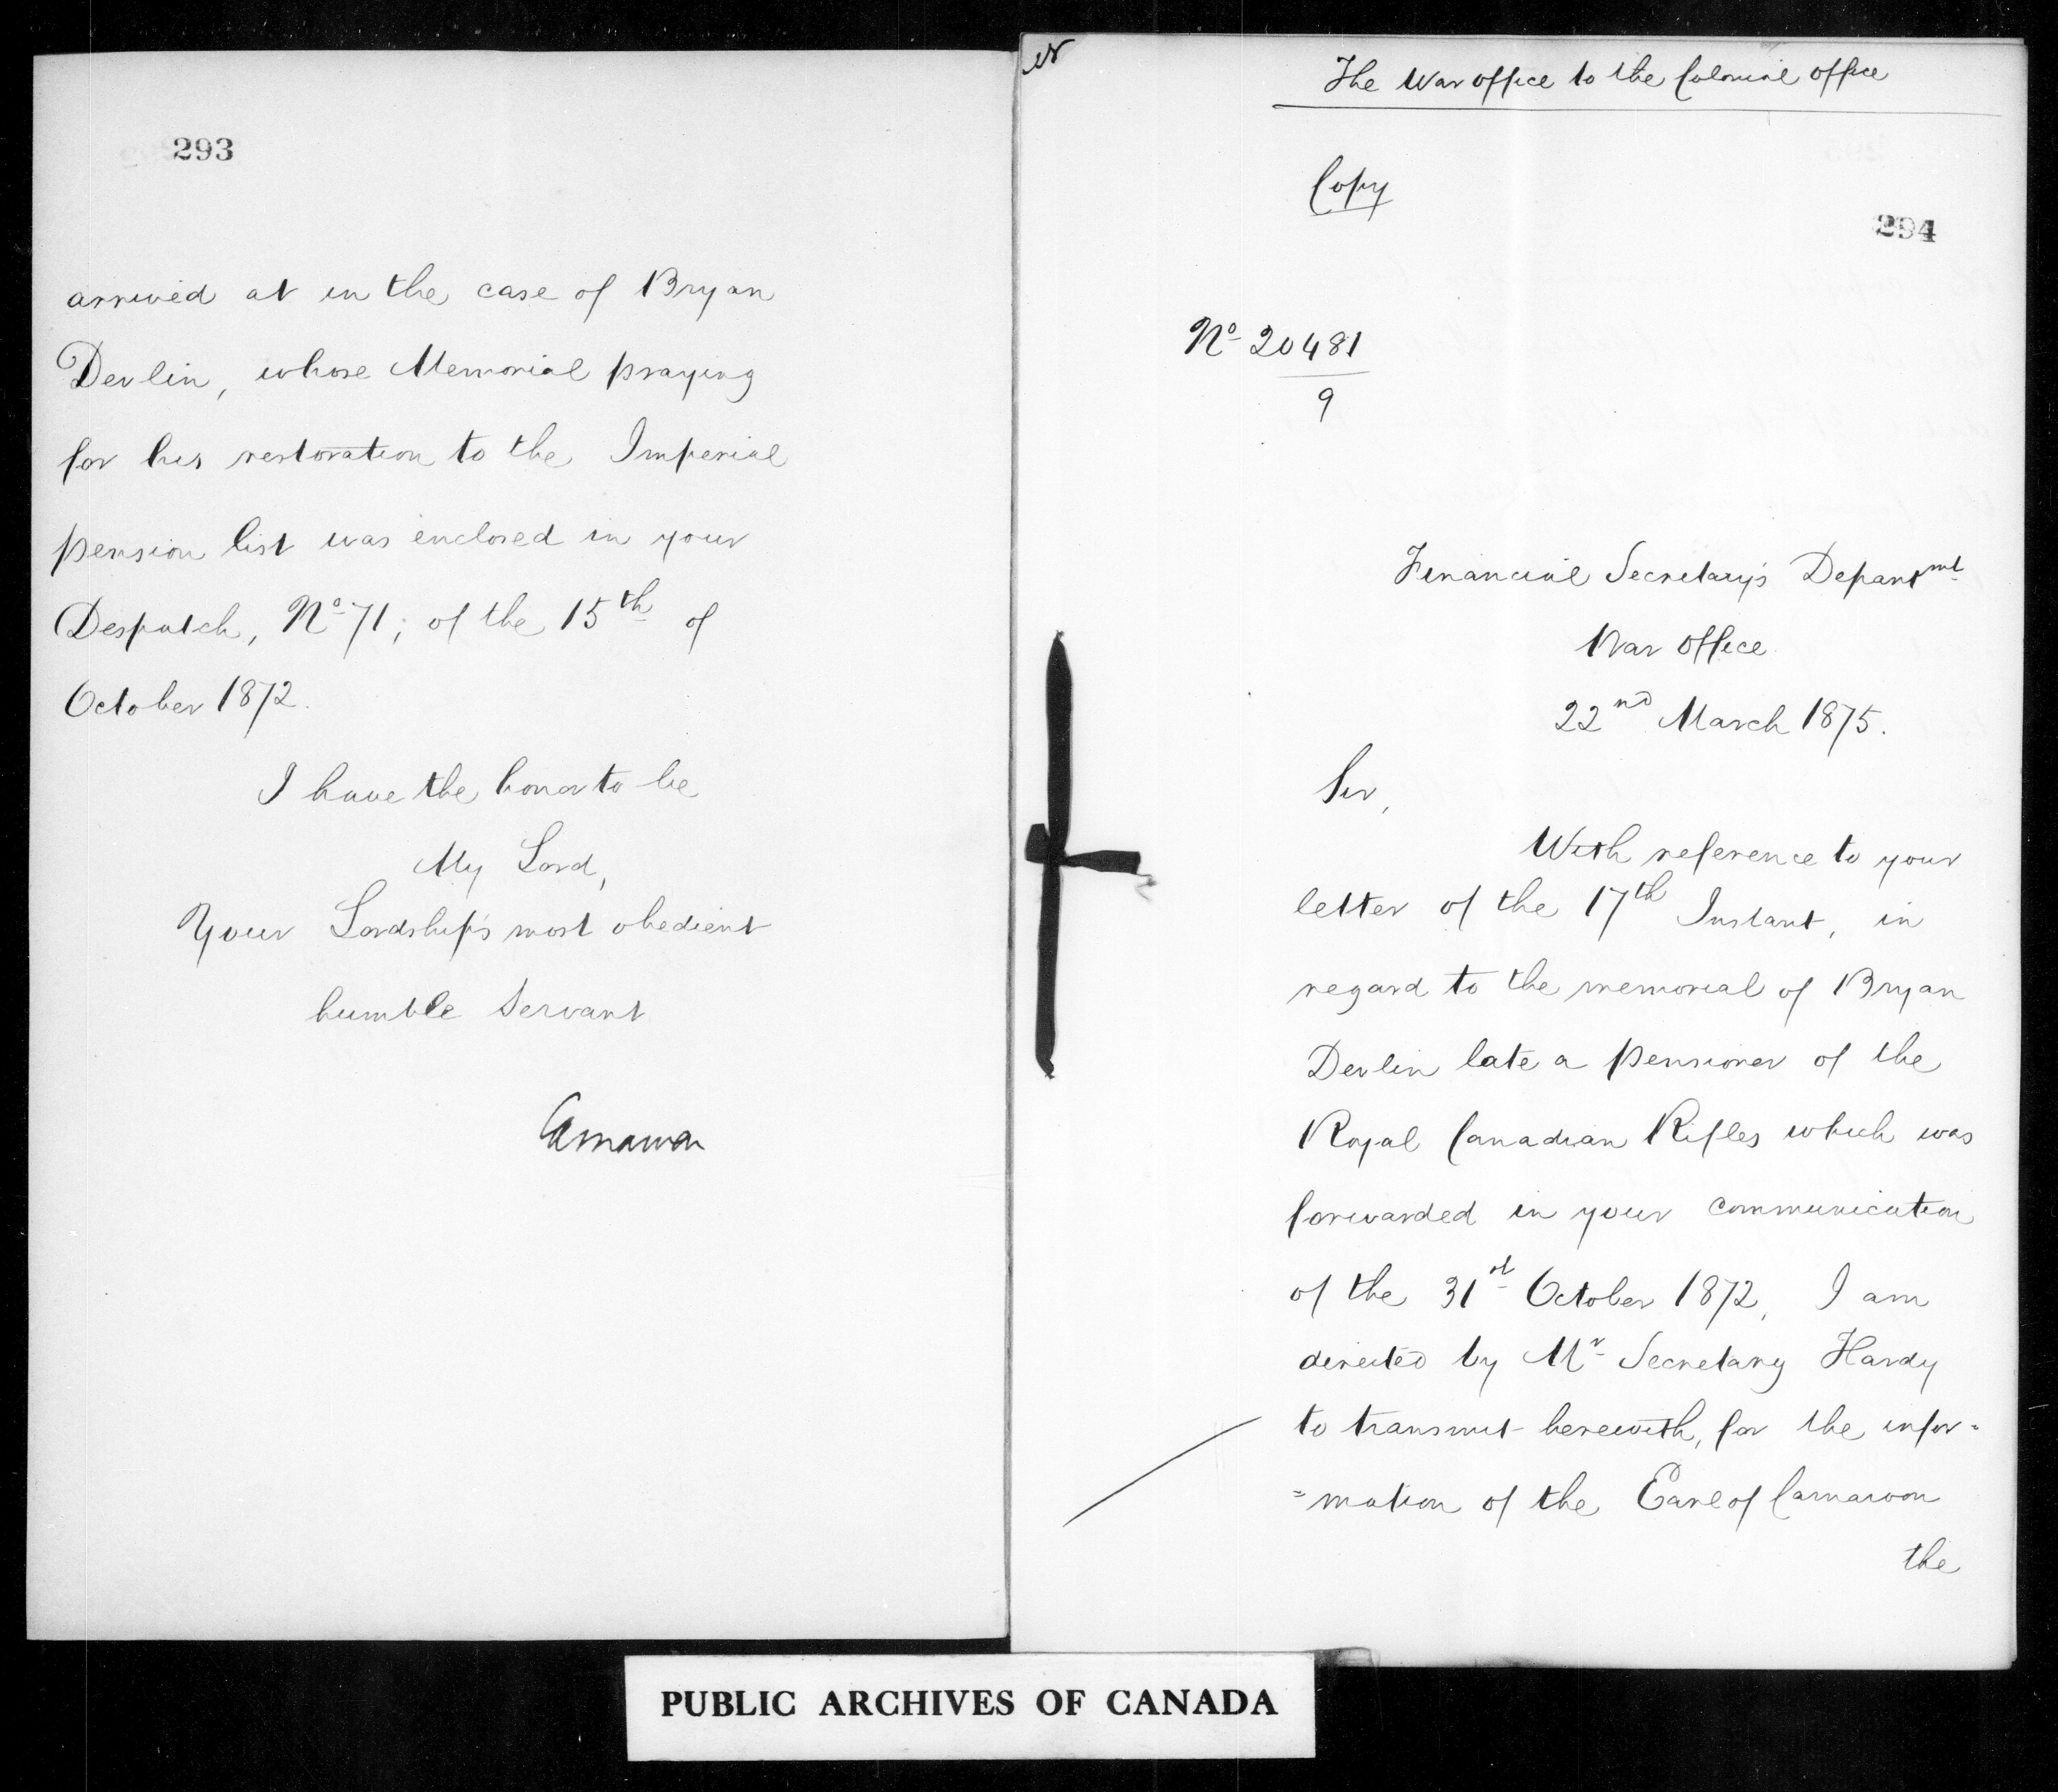 293
arrived at in the case of Bryan
Devlin, whose Memorial praying
for his restoration to the Imperial
pension list was enclosed in your
Despatch, No 71, of the 15th of
October 1872.
I have the honor to be
My Lord,
Your Lordship's most obedient
humble Servant
Carnarvon
The War Office to the Colonial Office
Copy
294
No 20481
9
Financial Secretary's Departmt
War Office
22nd March 1875.
Sir,
With reference to your
letter of the 17th Instant, in
regard to the memorial of Bryan
Devlin late a pensioner of the
Royal Canadian Rifles which was
forwarded in your communication
of the 31st October 1872, I am
directed by Mr Secretary Hardy
to transmit herewith, for the infor=
=mation of the Earl of Carnarvon
the
PUBLIC ARCHIVES OF CANADA